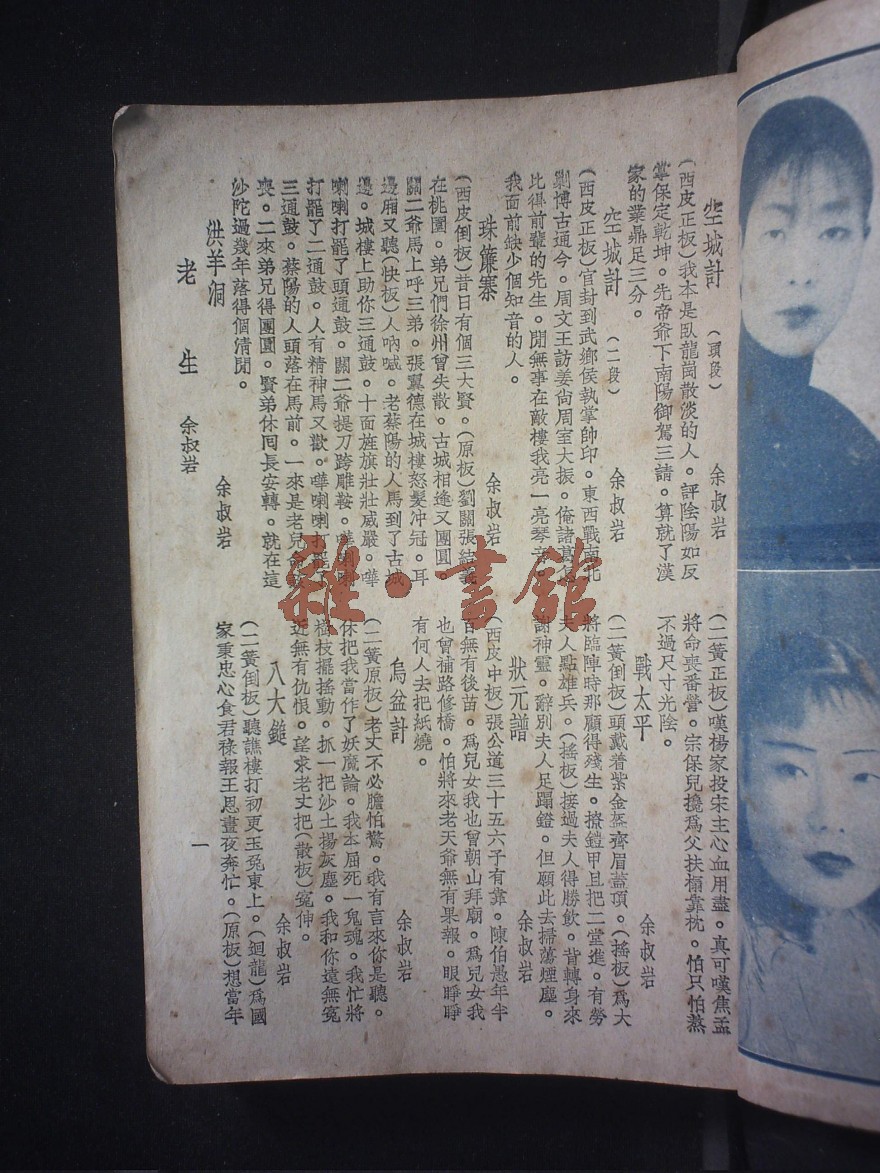 空城計 (頭段) 余叔岩
(西皮正板)我本是臥龍崗散淡的人。評陰陽如反
掌保定乾坤。先帝爺下南陽御駕三請。算就了漢
家的業鼎足三分。
空城計 (二段) 余叔岩
(西皮正板)官封到武鄉侯執掌帥印。東西戰南北
剿博古通今。周文王訪姜尚周室大振。俺諸葛怎
比得前輩的先生。閒無事在敵樓我亮一亮琴音。
我面前缺少個知音的人。
珠簾寨 余叔岩
(西皮倒板)昔日有個三大賢。(原板)劉關張結義
在桃園。弟兄們徐州曾失散。古城相逢又團圓
關二爺馬上呼三弟。張翼德在城樓怒髮冲冠。耳
邊廂又聽(快板)人吶喊。老蔡陽的人馬到了古城
邊。城樓上助你三通鼓。十面旌旗壯壯威嚴。嘩
喇喇打罷了頭通鼓。關二爺提刀跨雕鞍。嘩喇喇
打罷了二通鼓。人有精神馬又歡。嘩喇喇打罷了
三通鼓。蔡陽的人頭落在馬前。一來是老兒命
喪。二來弟兄得團圓。賢弟休囘長安轉。就在這
沙陀過幾年落得個清閒。
洪羊洞 余叔岩
(二簧正板)嘆楊家投宋主心血用盡。真可嘆焦孟
將命喪番營。宗保兒攙爲父扶榻靠枕。怕只怕熬
不過尺寸光陰。
戰太平 余叔岩
(二簧倒板)頭戴着紫金盔齊眉蓋頂。(搖板)爲大
將臨陣時那顧得殘生。撩鎧甲且把二堂進。有勞
夫人點雄兵。(搖板)接過夫人得勝飲。背轉身來
謝神靈。辭別夫人足蹋鐙。但願此去掃蕩煙塵。
狀元譜 余叔岩
(西皮中板)張公道三十五六子有靠。陳伯愚年半
百無有後苗。爲兒女我也曾朝山拜廟。爲兒女我
也曾補路修橋。怕將來老天爺無有果報。眼睜睜
有何人去把紙燒。
烏盆計 余叔岩
(二簧原板)老丈不必膽怕驚。我有言來你是聽。
休把我當作了妖魔論。我本屈死一鬼魂。我忙將
樹枝擺搖動。抓一把沙土揚灰塵。我和你遠無冤
近無有仇恨。望求老丈把(散板)冤伸。
八大鎚 余叔岩
(二簧倒板)聽譙樓打初更玉兔東上。(迴龍)爲國
家秉忠心食君祿報王恩晝夜奔忙。(原板)想當年
老生 余叔岩
一
雜·書館